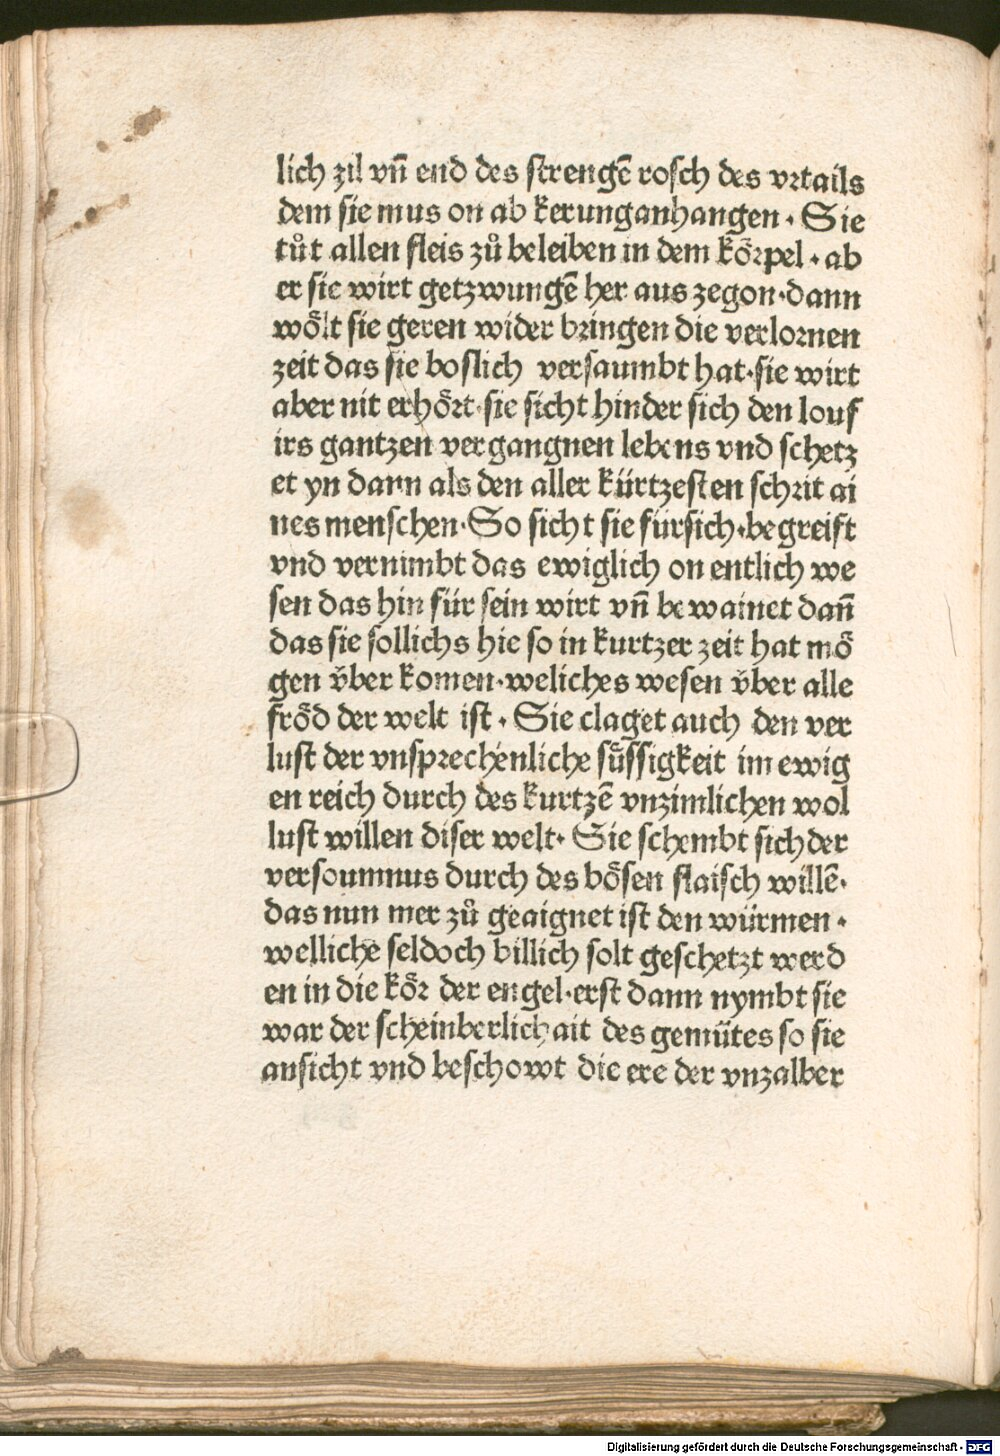 lich zil vn̄ end des strengē rosch des vrtails
dem sie mus on ab kerung anhangen · Sie
tůt allen fleis zů beleiben in dem kȫrpel · ab
er sie wirt getzwungē her aus zegon · dann
wȫlt sie geren wider bringen die verlornen
zeit das sie boslich versaumbt hat · sie wirt
aber nit erhȫrt · sie sicht hinder sich den louf
irs gantzen vergangnen lebens vnd schetz
et yn dann als den aller kürtzesten schrit ai
nes menschen · So sicht sie fürsich · begreift
vnd vernimbt das ewiglich on entlich we
sen das hin für sein wirt vn̄ bewainet dan̄
das sie sollichs hie so in kurtzer zeit hat mȫ
gen v̈ber komen · weliches wesen v̈ber alle
frȫd der welt ist · Sie claget auch den ver
lust der vnsprechenliche süssigkeit im ewig
en reich durch des kurtzē vnzimlichen wol
lust willen diser welt · Sie schembt sich der
versoumnus durch des bösen flaisch willē ·
das nun mer zů geaignet ist den würmen ·
welliche seldoch billich solt geschetzt werd
en in die kȫr der engel · erst dann nymbt sie
war der scheinberlichait des gemütes so sie
ansicht vnd beschowt die ere der vnzalber
Digitalisierung gefördert durch die Deutsche Forschungsgemeinschaft - DFG